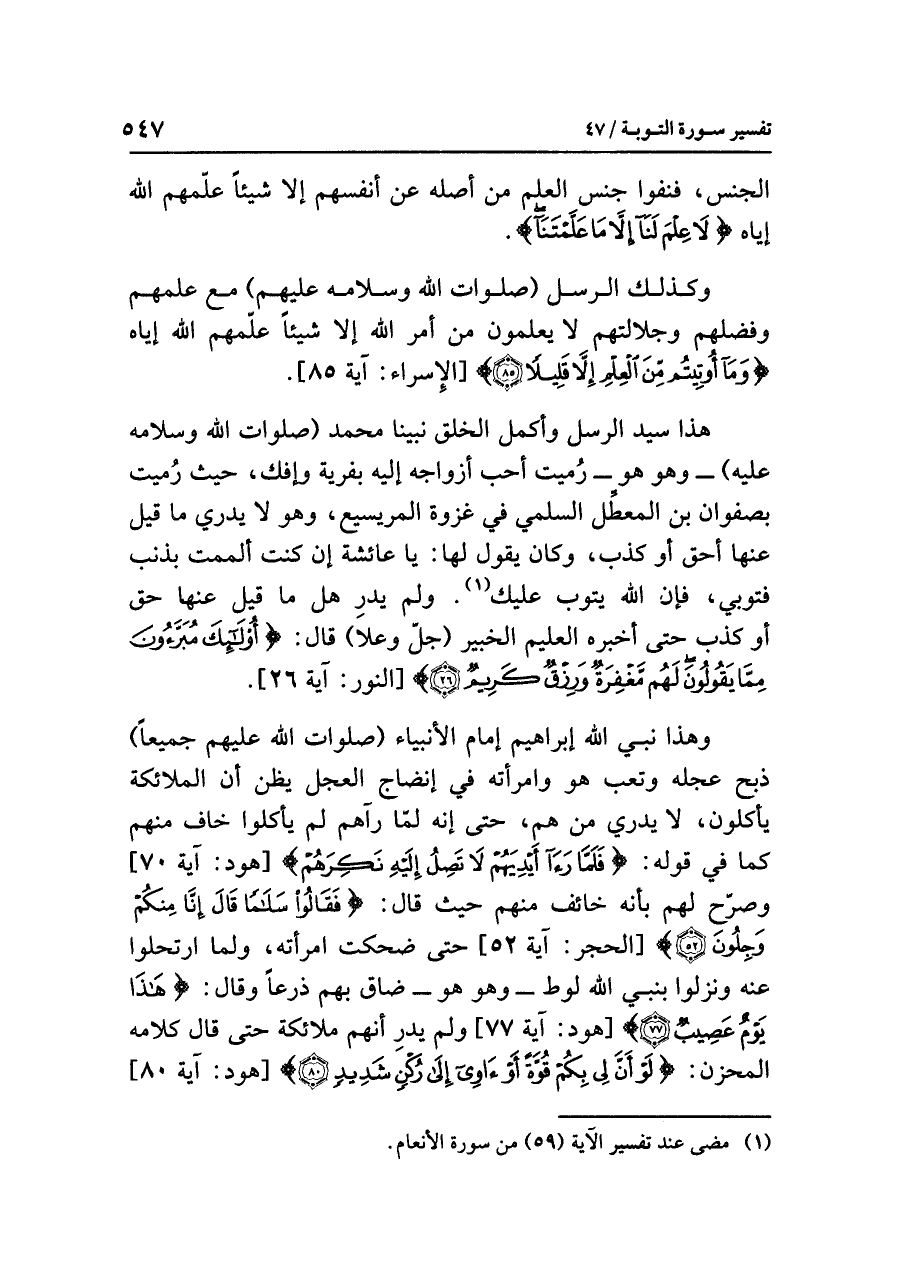 تفسير سورة التوبة / ٤٧
٥٤٧
الجنس، فنفوا جنس العلم من أصله عن أنفسهم إلا شيئاً علّمهم الله
إياه ﴿ لَا عِلْمَ لَنَآ إِلَّا مَا عَلَّمْتَنَآ ﴾.
وكذلك الرسل (صلوات الله وسلامه عليهم) مع علمهم
وفضلهم وجلالتهم لا يعلمون من أمر الله إلا شيئاً علّمهم الله إياه
﴿ وَمَآ أُوتِيتُم مِّنَ ٱلْعِلْمِ إِلَّا قَلِيلًا ٨٥ ﴾ [الإسراء: آية ٨٥].
هذا سيد الرسل وأكمل الخلق نبينا محمد (صلوات الله وسلامه
عليه) ــ وهو هو ــ رُميت أحب أزواجه إليه بفرية وإفك، حيث رُميت
بصفوان بن المعطِّل السلمي في غزوة المريسيع، وهو لا يدري ما قيل
عنها أحق أو كذب، وكان يقول لها: يا عائشة إن كنت ألممت بذنب
فتوبي، فإن الله يتوب عليك(١). ولم يدرِ هل ما قيل عنها حق
أو كذب حتى أخبره العليم الخبير (جلّ وعلا) قال: ﴿ أُوْلَٰٓئِكَ مُبَرَّءُونَ
مِمَّا يَقُولُونَ ۖ لَهُم مَّغْفِرَةٌ وَرِزْقٌ كَرِيمٌ ٢٦ ﴾ [النور: آية ٢٦].
وهذا نبي الله إبراهيم إمام الأنبياء (صلوات الله عليهم جميعاً)
ذبح عجله وتعب هو وامرأته في إنضاج العجل يظن أن الملائكة
يأكلون، لا يدري من هم، حتى إنه لمّا رآهم لم يأكلوا خاف منهم
كما في قوله: ﴿ فَلَمَّا رَءَآ أَيْدِيَهُمْ لَا تَصِلُ إِلَيْهِ نَكِرَهُمْ ﴾ [هود: آية ٧٠]
وصرّح لهم بأنه خائف منهم حيث قال: ﴿ فَقَالُوا۟ سَلَٰمًا قَالَ إِنَّا مِنكُمْ
وَجِلُونَ ٥٢ ﴾ [الحجر: آية ٥٢] حتى ضحكت امرأته، ولما ارتحلوا
عنه ونزلوا بنبي الله لوط ــ وهو هو ــ ضاق بهم ذرعاً وقال: ﴿ هَٰذَا
يَوْمٌ عَصِيبٌ ٧٧ ﴾ [هود: آية ٧٧] ولم يدرِ أنهم ملائكة حتى قال كلامه
المحزن: ﴿ لَوْ أَنَّ لِى بِكُمْ قُوَّةً أَوْ ءَاوِىٓ إِلَىٰ رُكْنٍ شَدِيدٍ ٨٠ ﴾ [هود: آية ٨٠]
(١) مضى عند تفسير الآية (٥٩) من سورة الأنعام.